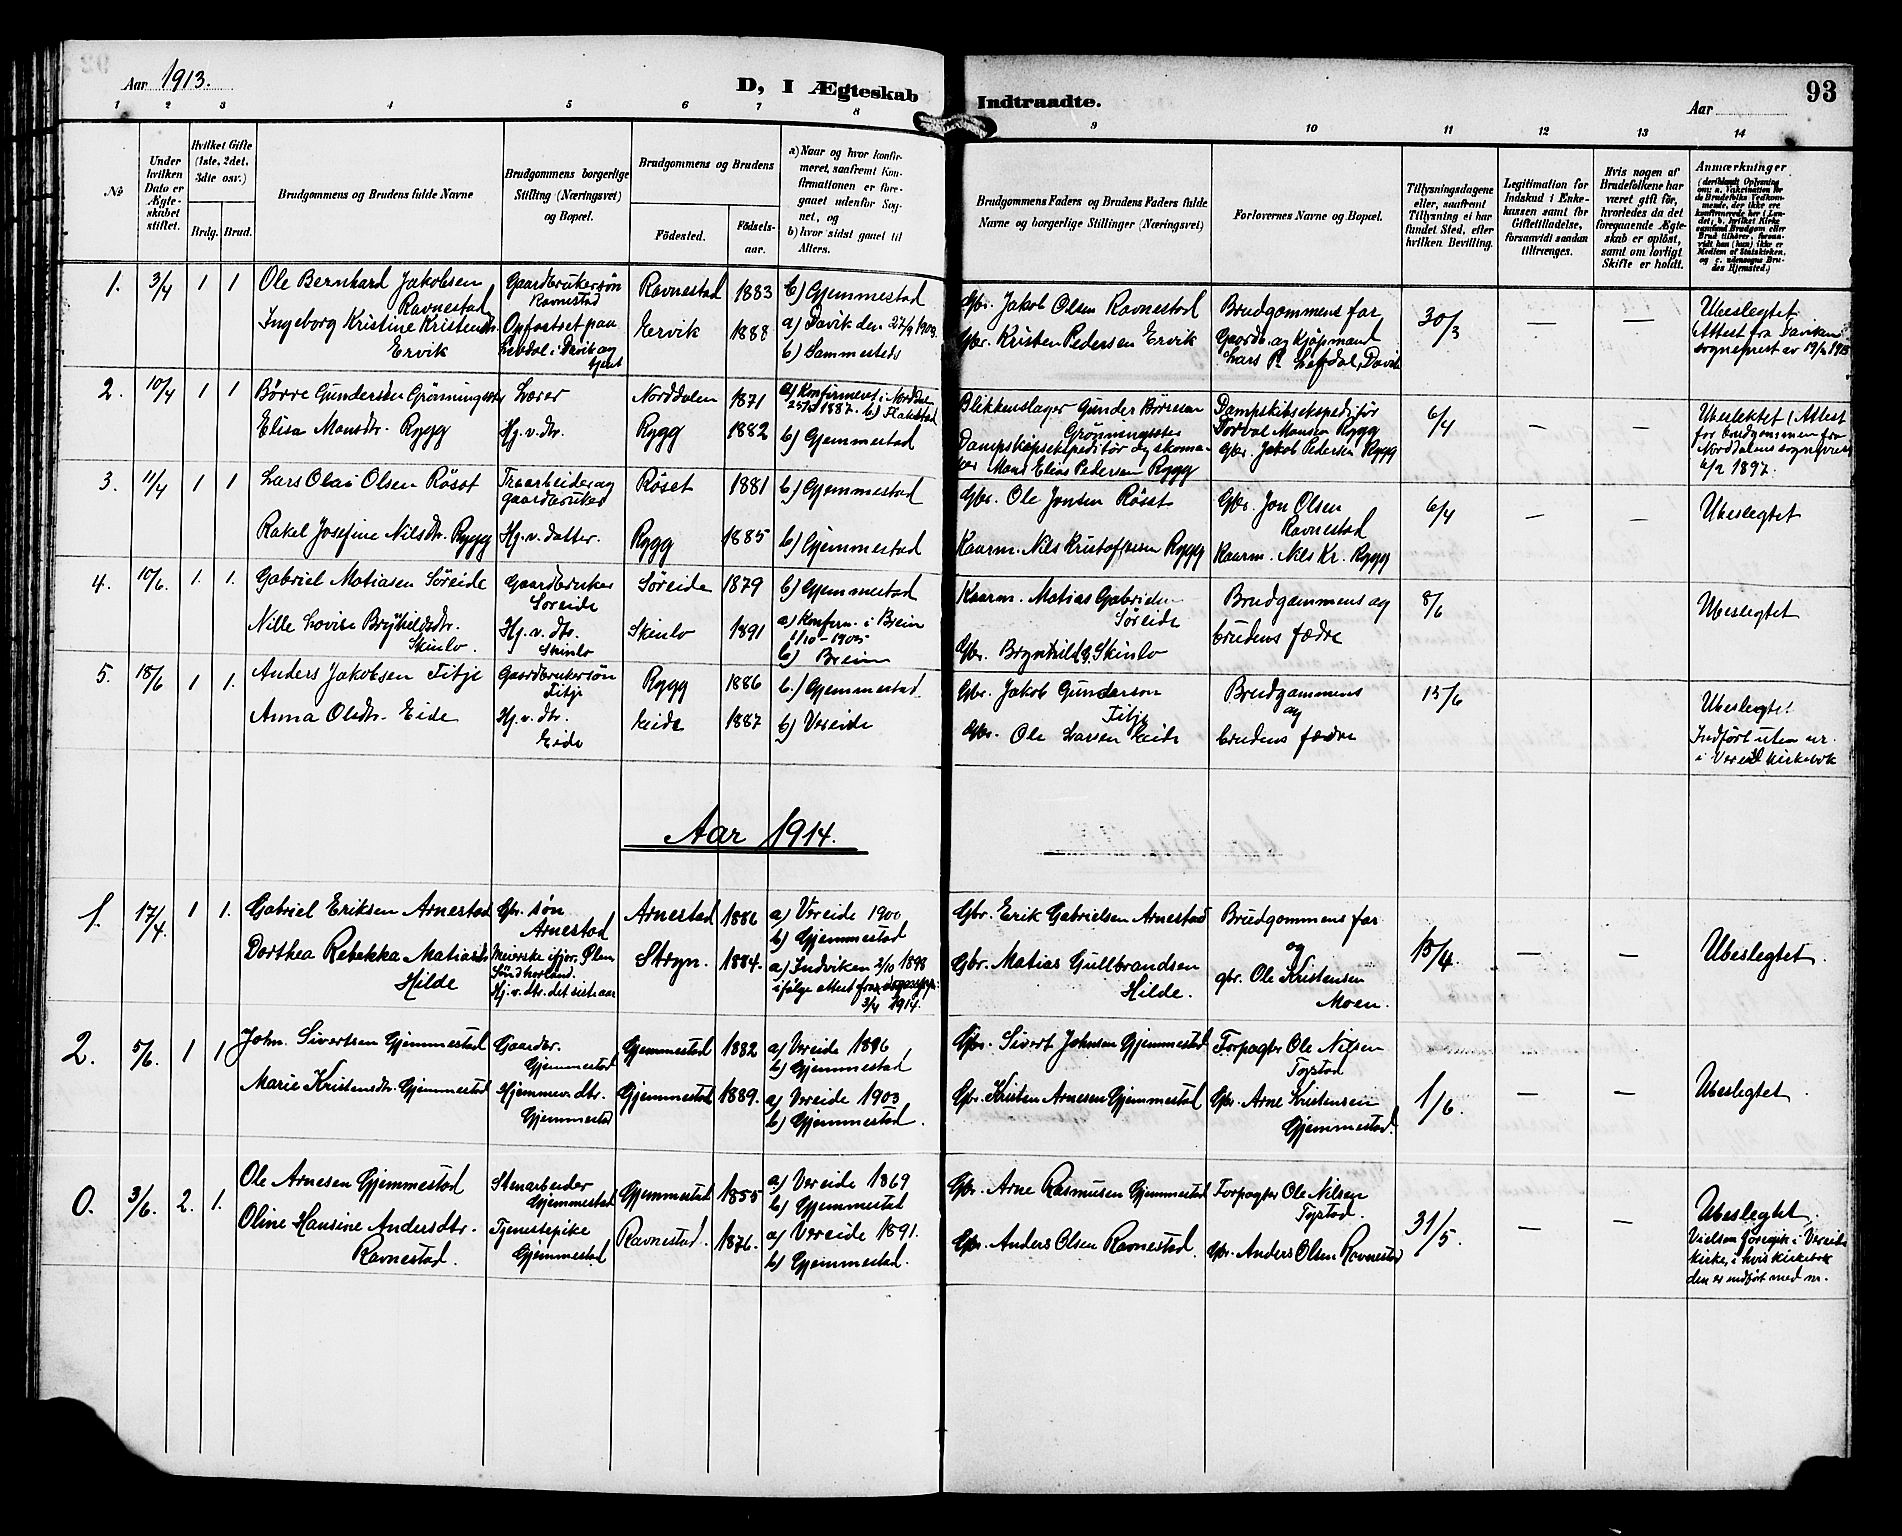 Aar 1913.
D, I Ægteskab Indtraadte.
Aar
93
1 2 3 4 5 6 7 8 9 10 11 12 13 14
No
Under hvilken Dato er Ægteskabet stiftet.
Hvilket Gifte (1ste, 2det, 3die osv.)
Brdg. Brud.
Brudgommens og Brudens fulde Navne
Brudgommens borgerlige Stilling (Næringsvei) og Bopæl.
Brudgommens og Brudens
Födested.
Födselsaar.
a) Naar og hvor konfirmeret, saafremt Konfirmationen er foregaaet udenfor Sognet, og
b) hvor sidst gaaet til Alters.
Brudgommens Faders og Brudens Faders fulde Navne og borgerlige Stillinger (Næringsvei)
Forlovernes Navne og Bopæl.
Tillysningsdagene eller, saafremt Tillysning ei har fundet Sted, efter hvilken Bevilling.
Legitimation for Indskud i Enkekassen samt for Giftetilladelse, forsaavidt saadan tiltrænges.
Hvis nogen af Brudefolkene har været gift før, hvorledes da det foregaaende Ægteskab er oplöst, samt om lovligt Skifte er holdt.
Anmærkninger
1. 3/4 1 1
Ole Bernhard Jakobsen Ravnestad
Gaardbrukersøn Ravnestad
Ravnestad 1883
b) Gjemmestad
Gbr. Jakob Olsen Ravnestad
Brudgommens far
30/3 — —
Ubeslegtet
Ingeborg Kristine Kristensdtr. Ervik
Opfostset paa
Ervik 1888
a) Davik den 27/9 1903
b) Sammesteds
Gbr. Kristen Pedersen Ervik
Gaardb. og Kjøpmand
Lars P. Lefdal, Davik
2. 10/4 1 1
Børre Gundersen Grönningsæter
Lærer
Norddalen 1871
a) Konfirmeret i Norddalen
Blikkenslager Gunder Börresen Grønningsæter
Dampskibsekspeditør
Torval Monsen Rygg
6/4 — —
Ubeslektet
Elisa Monsdtr. Rygg
Hj. v. dtr.
Rygg 1882
b) Gjemmestad
Mons Elias Pedersen Rygg
Gbr. Jakob Pedersen Rygg
3. 11/4 1 1
Lars Olai Olsen Röset
Træarbeider og gaardbruker
Röset 1881
b) Gjemmestad
Gbr. Ole Jonsen Röset
Gbr. Jon Olsen Ravnestad
6/4 — —
Ubeslegtet
Rakel Josefine Nilsdtr. Rygg
Hj. v. datter.
Rygg 1885
b) Gjemmestad
Kaarm. Nils Kristoffersen Rygg
Kaarm. Nils Kr. Rygg
4. 10/6. 1. 1.
Gabriel Matiasen Söreide
Gaardbruker Soreide
Søreide 1879
b) Gjemmestad
Kaarm. Matias Gabrielsen Søreide
Brudgammens og brudens fædre
8/6
Ubeslegtet
Nille Lovise Brynhildsdtr. Skinlo.
Hj. v. dtr. Skinlo
Skinlo 1891
a) Konfirm. i Breim
1/10 - 1905
b) Breim
Gbr. Brynhild G. Skinlo
5. 18/6 1 1.
Anders Jakobsen Titje
Gaardbrukersøn Titje
Rygg 1886
b.) Gjemmestad
Gbr. Jakob Gunderson Titje
Brudgammens og brudens fædre
15/6
Ubeslegtet.
Indført uten nr. i Vereid kirkebok
Anna Olsdtr. Eide
Hj. v. dtr. Eide
Eide 1887
b) Vereide
Gbr. Ole Larsen Eide
Aar 1914.
1. 17/4. 1 1.
Gabriel Eriksen Arnestad
Gbr. søn Arnestad
Arnestad 1886
a) Vereide 1900
b) Gjemmestad
Gbr. Erik Gabrielsen Arnestad
Brudgommens far og
15/4. — —
Ubeslegtet
Dorthea Rebekka Matiasdtr. Hilde
Hj. v. dtr. det siste aar
Stryn. 1884.
a) Indviken 2/10 1898
3/4 1914.
Gbr. Matias Gullbrandsen Hilde.
gbr. Ole Kristensen Moen.
2. 5/6. 1 1
John Sivertsen Gjemmestad
Gaardbr. Gjemmestad
Gjemmestad 1882
a) Vereide 1896
b) Gjemmestad
Gbr. Sivert Johnsen Gjemmestad
Forpagter Ole Nilsen Tystad
1/6. — —
Ubeslegtet
Marie Kristensdtr. Gjemmestad
Hjemmev. dtr. Gjemmestad
Gjemmestad 1889.
a) Vereide 1903
b) Gjemmestad.
Gbr. Kristen Arnesen Gjemmestad
Gbr. Arne Kristensen Gjemmestad.
0. 3/6. 2. 1.
Ole Arnesen Gjemmestad
Stenarbeider Gjemmestad
Gjemmestad 1855
a) Vereide 1869
b) Gjemmestad
Gbr. Arne Rasmusen Gjemmestad
Forpagter Ole Nilsen Tystad.
31/5. — —
Ubeslegtet.
Vielsen foregik i Vereide kirke, i hvis kirkebok den er indført med nr.
Oline Hansine Andersdtr. Ravnestad.
Tjenestepike Gjemmestad
Ravnestad. 1876.
a) Vereide 1891.
b) Gjemmestad.
Gbr. Anders Olsen Ravnestad.
Gbr. Anders Olsen Ravnestad